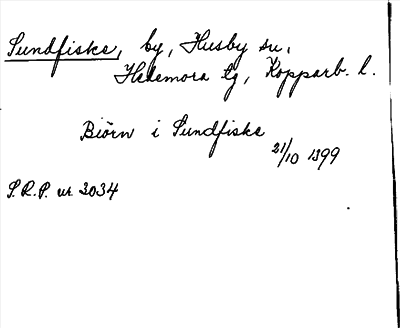 Sundfiske, by, Husby sn,
Hedemora tg, Kopparb. l.
Biörn i Sundfiske
21/10 1399
S.R.P. nr 3034